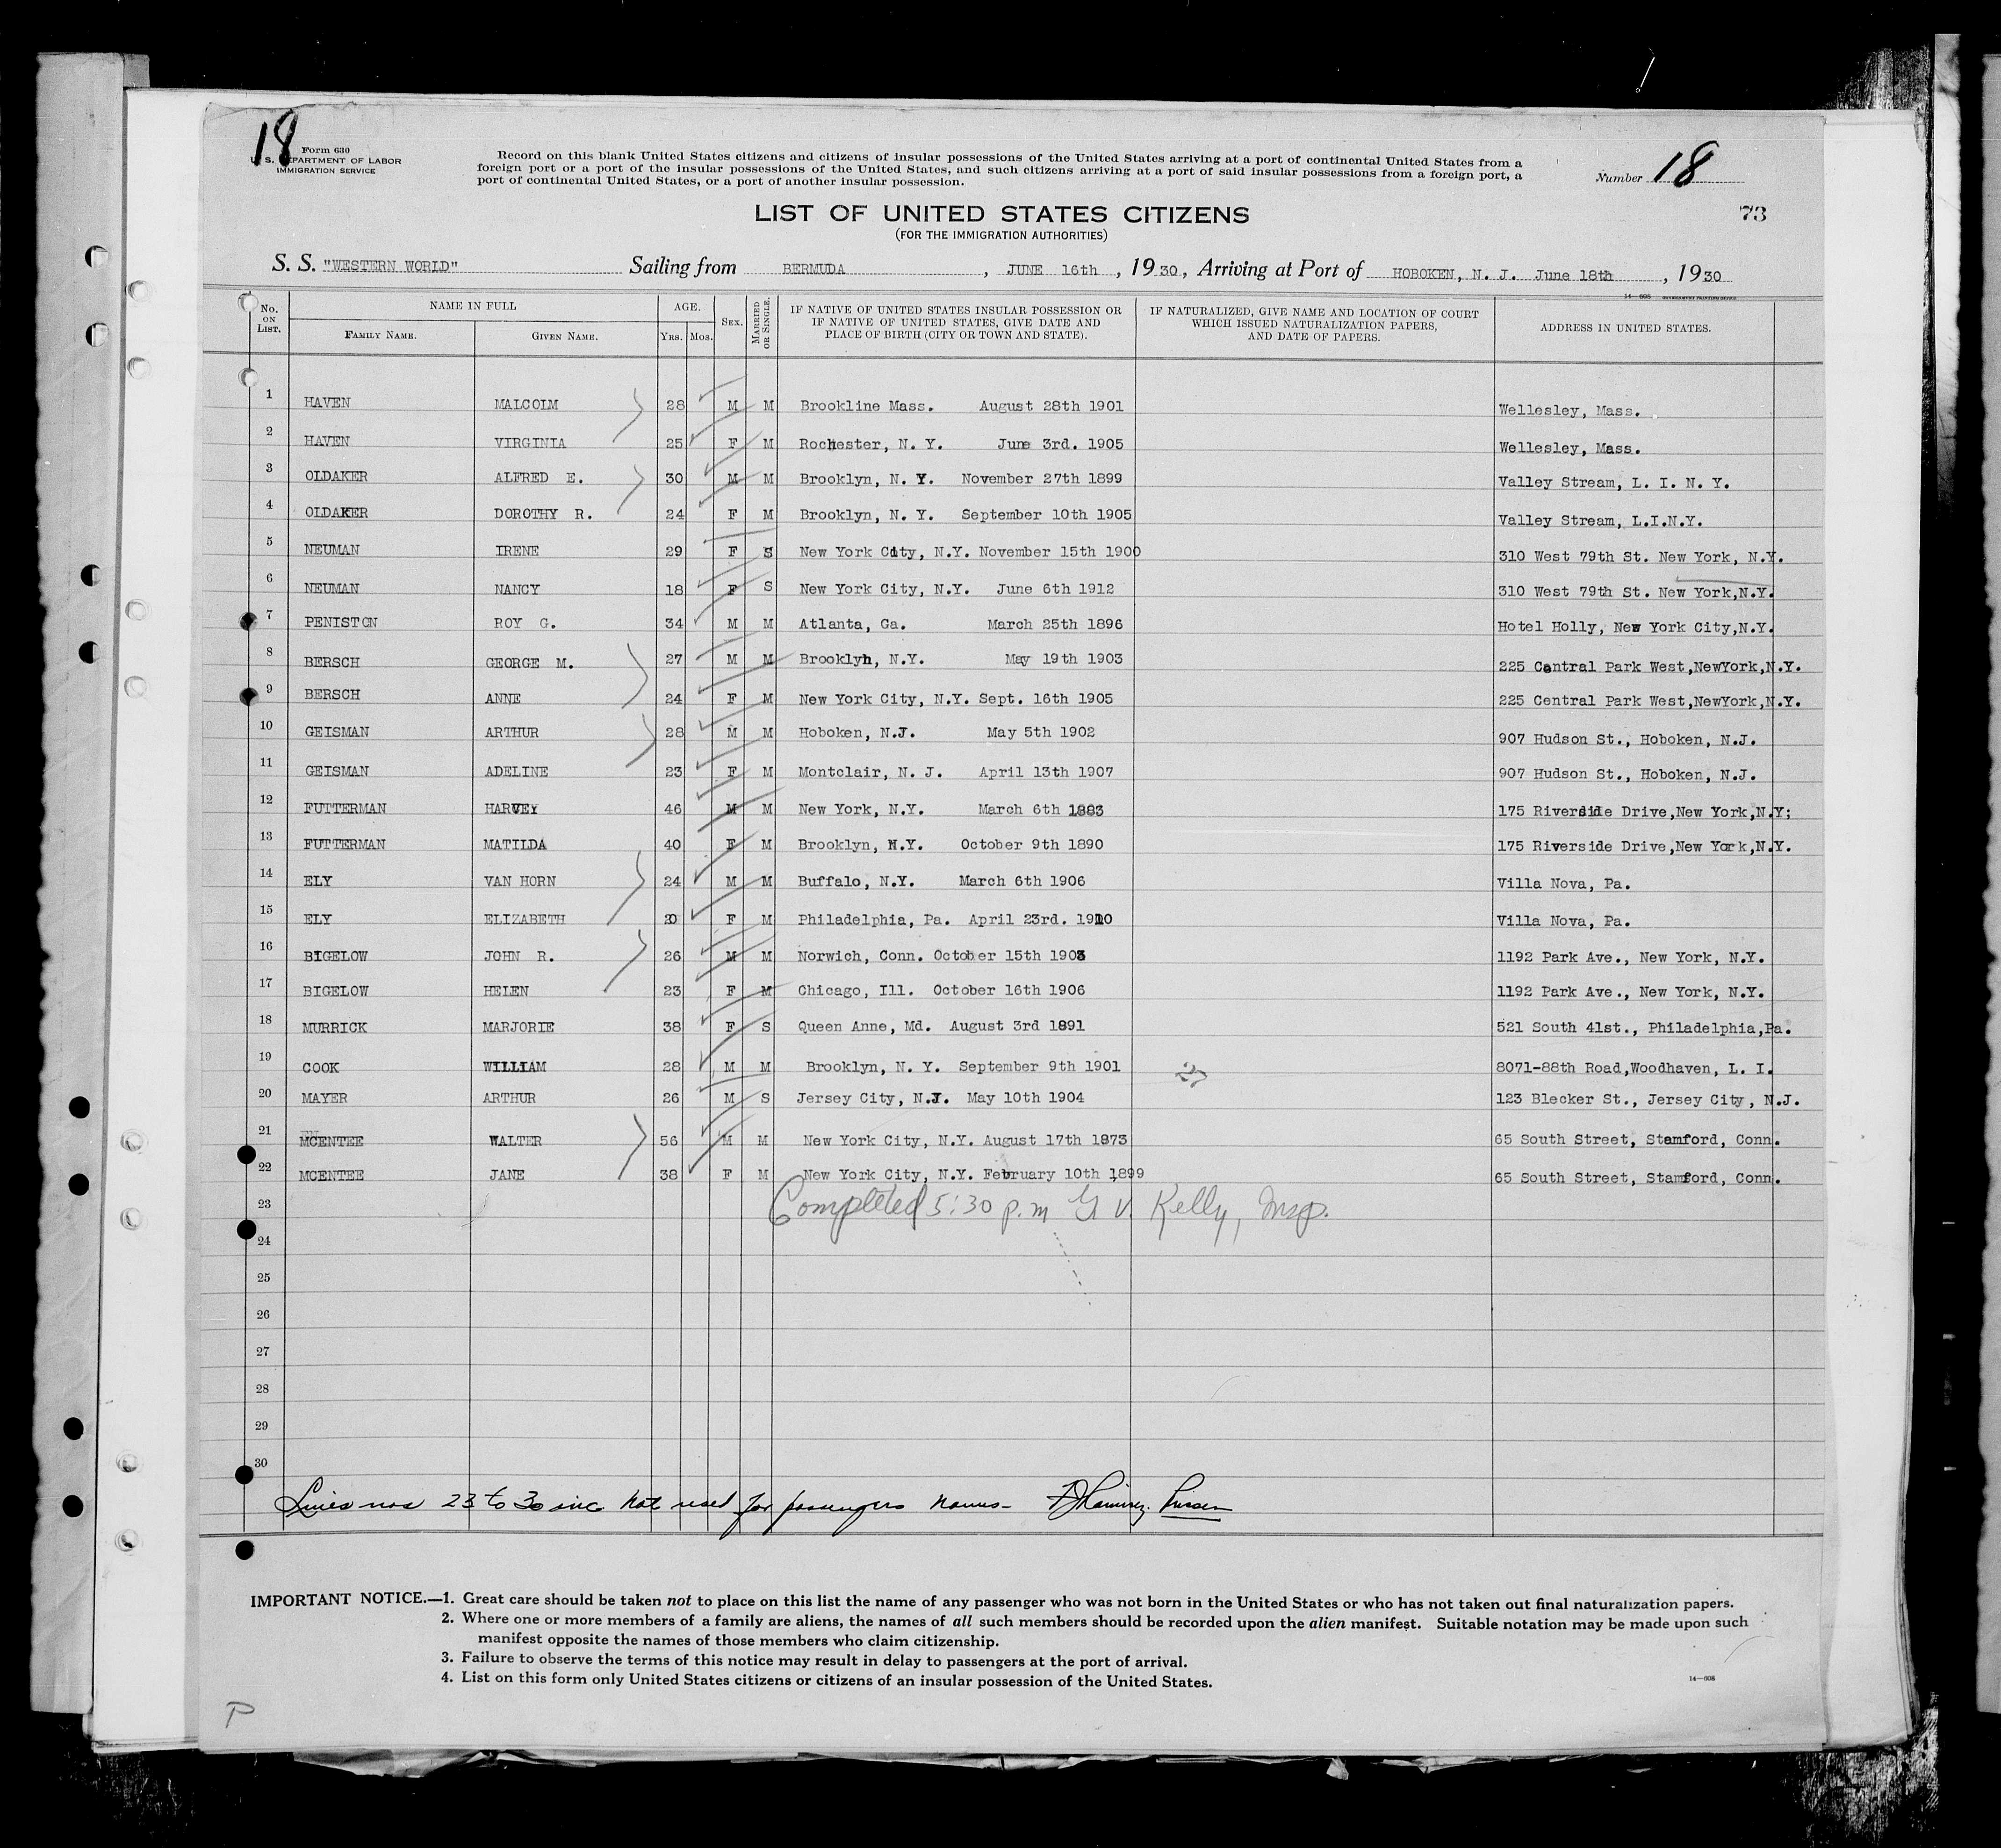 18
Form 630
U. S. DEPARTMENT OF LABOR
IMMIGRATION SERVICE
Record on this blank United States citizens and citizens of insular possessions of the United States arriving at a port of continental United States from a
foreign port or a port of the insular possessions of the United States, and such citizens arriving at a port of said insular possessions from a foreign port, a
port of continental United States, or a port of another insular possession.
Number 18
73
LIST OF UNITED STATES CITIZENS
(FOR THE IMMIGRATION AUTHORITIES)
S. S. "WESTERN WORLD" Sailing from BERMUDA, JUNE 16th, 1930, Arriving at Port of HOBOKEN, N. J. June 18th, 1930
14—608 GOVERNMENT PRINTING OFFICE
No. ON LIST. NAME IN FULL FAMILY NAME. GIVEN NAME. AGE. Yrs. Mos. SEX. MARRIED OR SINGLE. IF NATIVE OF UNITED STATES INSULAR POSSESSION OR IF NATIVE OF UNITED STATES, GIVE DATE AND PLACE OF BIRTH (CITY OR TOWN AND STATE). IF NATURALIZED, GIVE NAME AND LOCATION OF COURT WHICH ISSUED NATURALIZATION PAPERS, AND DATE OF PAPERS. ADDRESS IN UNITED STATES.
1 HAVEN MALCOLM 28 M M Brookline Mass. August 28th 1901 Wellesley, Mass.
2 HAVEN VIRGINIA 25 F M Rochester, N. Y. June 3rd. 1905 Wellesley, Mass.
3 OLDAKER ALFRED E. 30 M M Brooklyn, N. Y. November 27th 1899 Valley Stream, L. I. N. Y.
4 OLDAKER DOROTHY R. 24 F M Brooklyn, N. Y. September 10th 1905 Valley Stream, L.I.N.Y.
5 NEUMAN IRENE 29 F S New York City, N.Y. November 15th 1900 310 West 79th St. New York, N.Y.
6 NEUMAN NANCY 18 F S New York City, N.Y. June 6th 1912 310 West 79th St. New York,N.Y.
7 PENISTON ROY G. 34 M M Atlanta, Ga. March 25th 1896 Hotel Holly, New York City,N.Y.
8 BERSCH GEORGE M. 27 M M Brooklyn, N.Y. May 19th 1903 225 Central Park West,NewYork,N.Y.
9 BERSCH ANNE 24 F M New York City, N.Y. Sept. 16th 1905 225 Central Park West,NewYork,N.Y.
10 GEISMAN ARTHUR 28 M M Hoboken, N.J. May 5th 1902 907 Hudson St., Hoboken, N.J.
11 GEISMAN ADELINE 23 F M Montclair, N. J. April 13th 1907 907 Hudson St., Hoboken, N.J.
12 FUTTERMAN HARVEY 46 M M New York, N.Y. March 6th 1883 175 Riverside Drive,New York,N.Y;
13 FUTTERMAN MATILDA 40 F M Brooklyn, N.Y. October 9th 1890 175 Riverside Drive,New York,N.Y.
14 ELY VAN HORN 24 M M Buffalo, N.Y. March 6th 1906 Villa Nova, Pa.
15 ELY ELIZABETH 20 F M Philadelphia, Pa. April 23rd. 1910 Villa Nova, Pa.
16 BIGELOW JOHN R. 26 M M Norwich, Conn. October 15th 1903 1192 Park Ave., New York, N.Y.
17 BIGELOW HELEN 23 F M Chicago, Ill. October 16th 1906 1192 Park Ave., New York, N.Y.
18 MURRICK MARJORIE 38 F S Queen Anne, Md. August 3rd 1891 521 South 41st., Philadelphia,Pa.
19 COOK WILLIAM 28 M M Brooklyn, N. Y. September 9th 1901 8071-88th Road,Woodhaven, L. I.
20 MAYER ARTHUR 26 M S Jersey City, N.J. May 10th 1904 123 Blecker St., Jersey City, N.J.
21 MCENTEE WALTER 56 M M New York City, N.Y. August 17th 1873 65 South Street, Stamford, Conn.
22 MCENTEE JANE 38 F M New York City, N.Y. February 10th 1899 65 South Street, Stamford, Conn.
23 Completed 5:30 p.m G V. Kelly, Insp.
24
25
26
27
28
29
30
Lines nos 23 to 30 inc Not used for passengers names- Purser
IMPORTANT NOTICE.—1. Great care should be taken not to place on this list the name of any passenger who was not born in the United States or who has not taken out final naturalization papers.
2. Where one or more members of a family are aliens, the names of all such members should be recorded upon the alien manifest. Suitable notation may be made upon such
manifest opposite the names of those members who claim citizenship.
3. Failure to observe the terms of this notice may result in delay to passengers at the port of arrival.
4. List on this form only United States citizens or citizens of an insular possession of the United States.
14—608
P